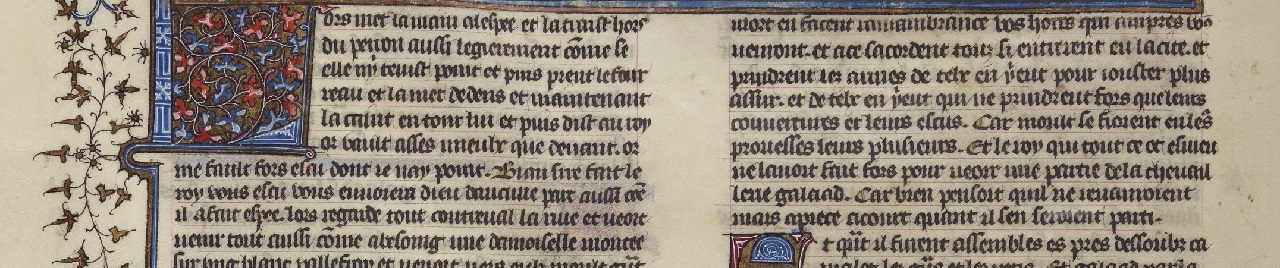 ors met la main alespee et la traist hors
du perron aussi legierement cõme se
elle ny tenist point et puis prent le four
reau et la met dedens et maintenant
la caint entour lui et puis dist au roy
or vault asses mieulx que deuant. or
me fault fors escu dont ie nay point. Biau sire fait le
roy vous escu vous enuoiera dieu daucune part aussi cõe
il a fait espee. lors regarde tout contreual la riue et veoit
venir tout aussi cõme une damoiselle montee
sur ung blanc palleffroy et venoit vers eulx moult
mort en facent ramambrance vos hoirs qui aprres vos
uenront. et ace sacordent touz si entrerent en la cite. et
prindrent les armes de telx en y eut pour iouster plus
assur. et de telx en y eut qui ne prindrent fors que leurs
couuertures et leurs escus. Car moult se fioient en lés
prouesses leurs plusieurs. Et le roy qui tout ce ot esmeu
ne lauoit fait fors pour ueoir une partie de la cheuail
lerie galaad. Car bien pensoit quil ne reuanroient
mais apiece acourt quant il sen seroient parti.
t q̃nt il furent assembles es pres dessoubz ca